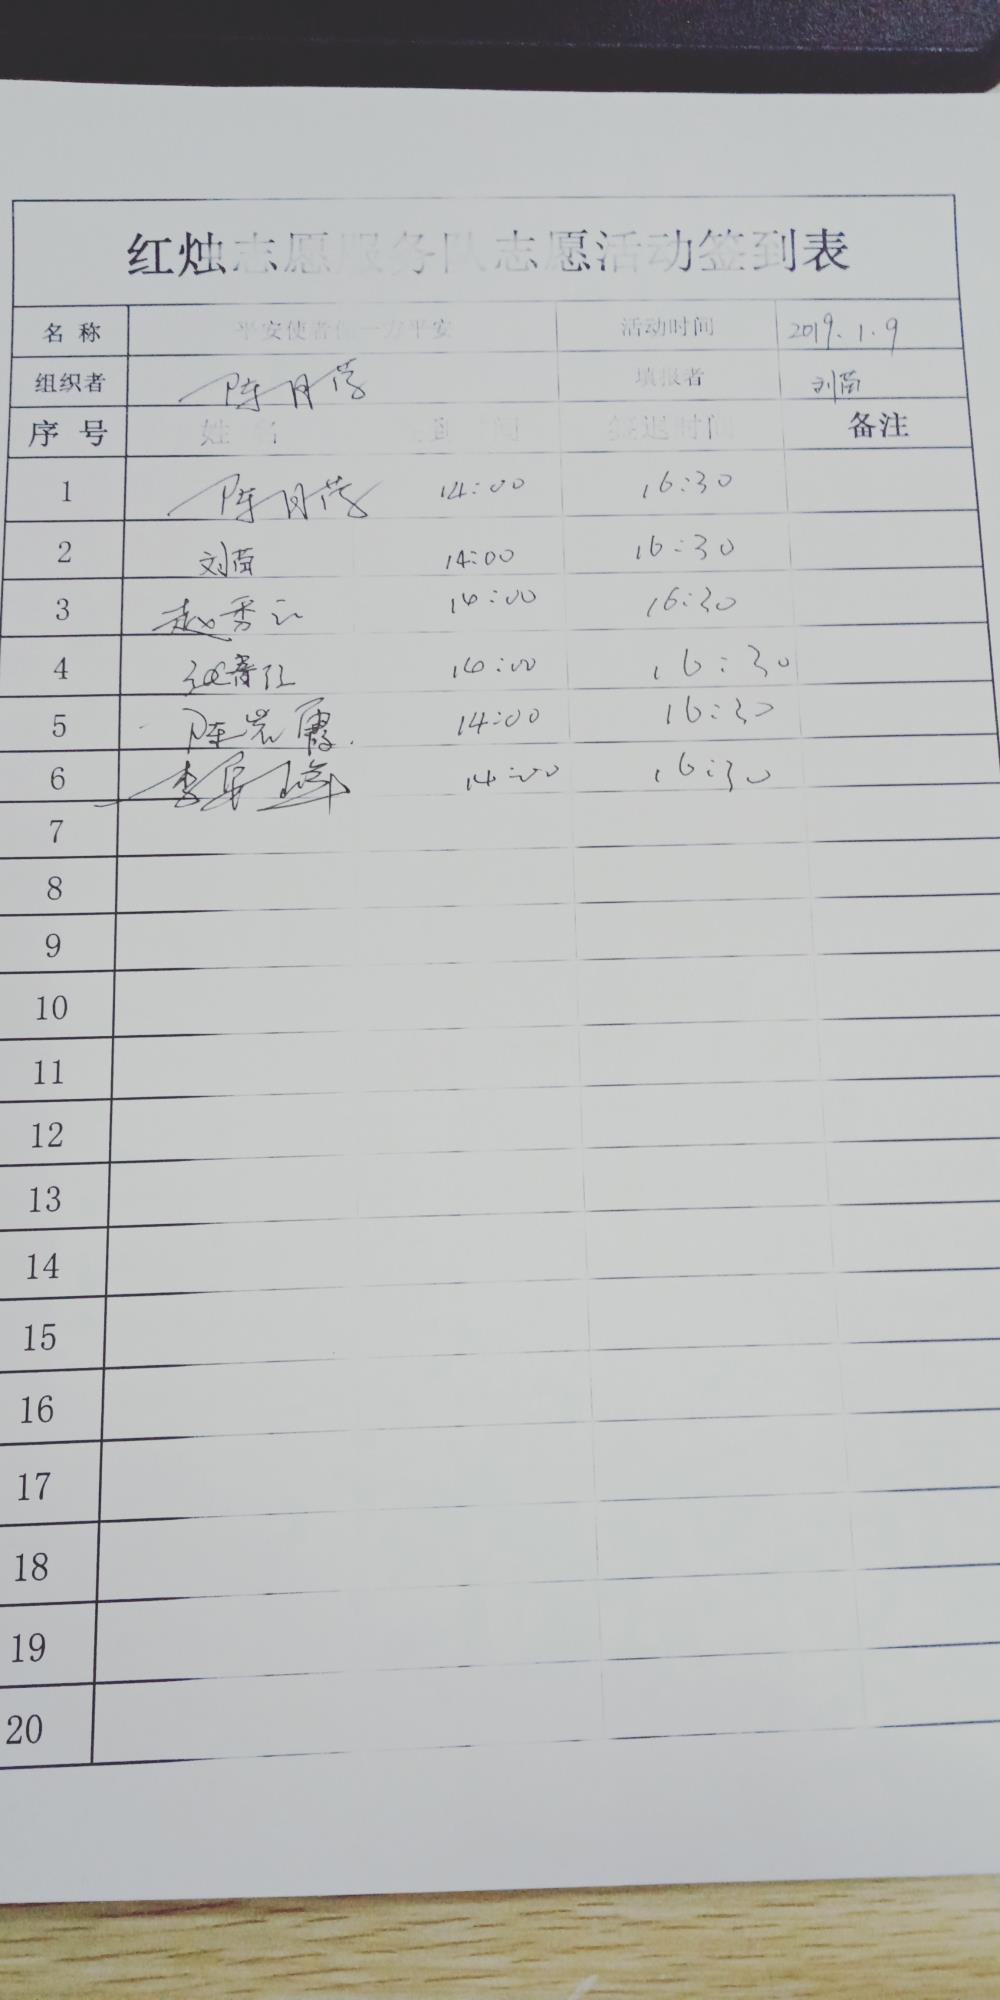 红烛志愿服务队志愿活动签到表
名 称 平安使者保一方平安 活动时间 2019.1.9
组织者 陈月 填报者 刘茵
序 号 姓 名 签到时间 签退时间 备注
1 陈月 14:00 16:30
2 刘茵 14:00 16:30
3 赵秀云 14:00 16:30
4 14:00 16:30
5 陈岩霞 14:00 16:30
6 李 14:00 16:30
7
8
9
10
11
12
13
14
15
16
17
18
19
20